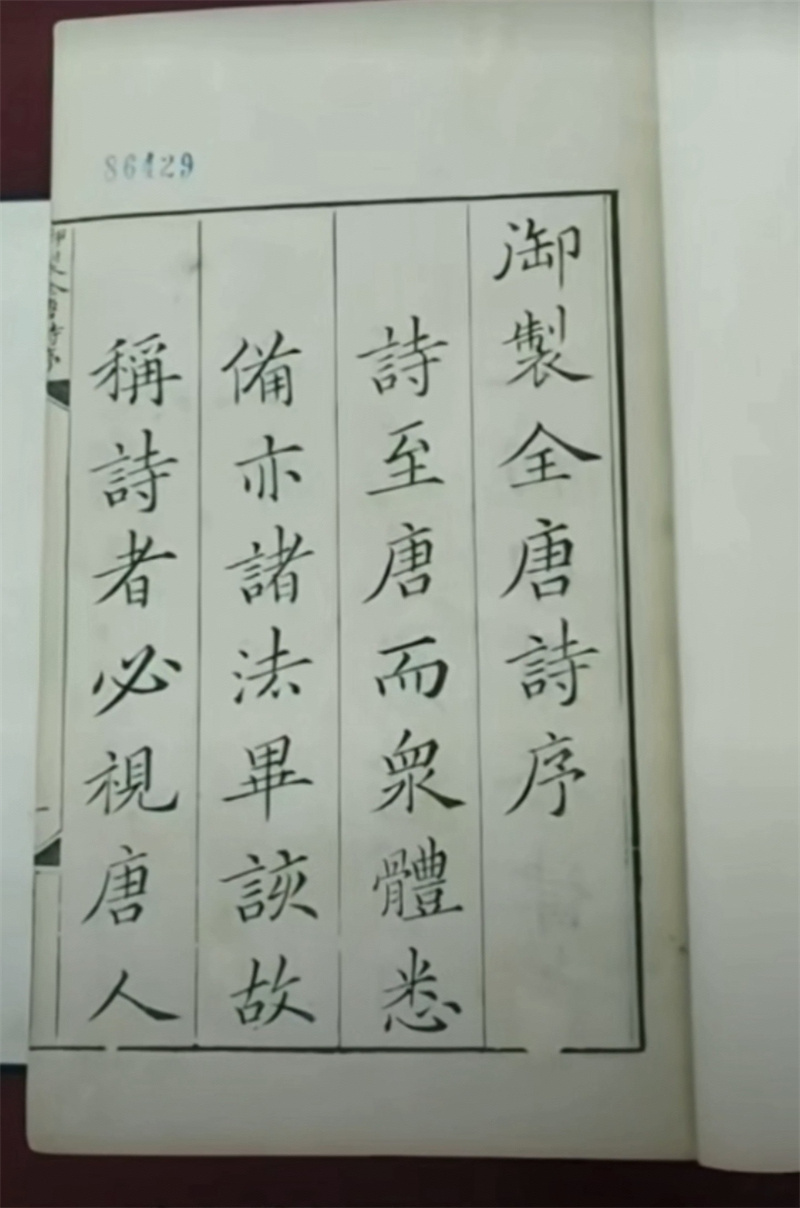 86429
御製全唐詩序
詩至唐而衆體悉
備亦諸法畢該故
稱詩者必視唐人
御製全唐詩序